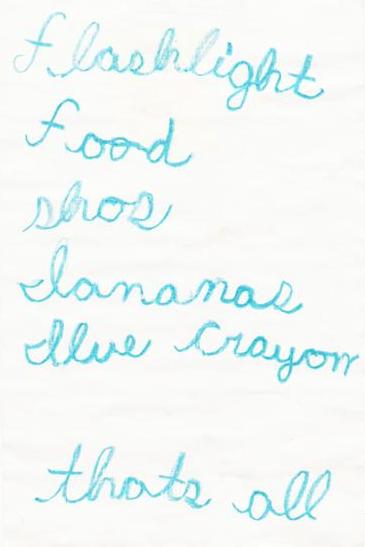 flashlight
food
shos
bananas
blue crayon
thats all